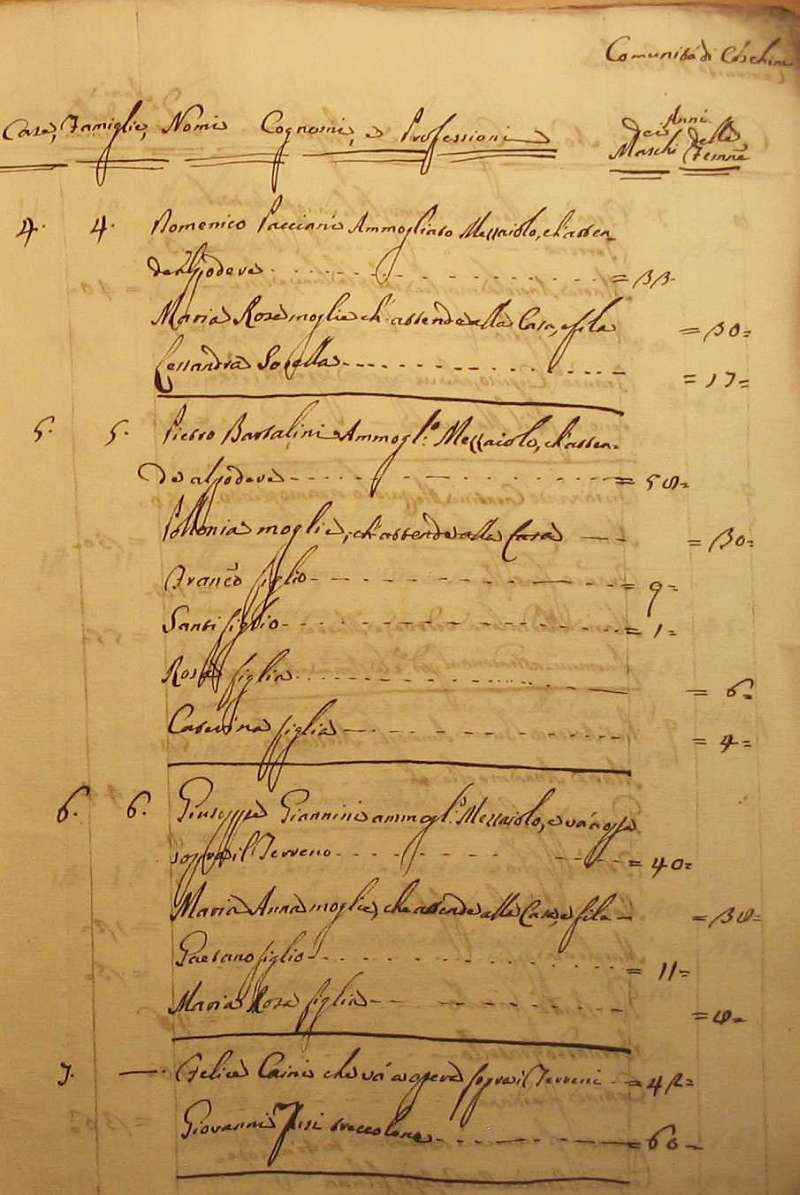 Comunità di
Case, Famiglie, Nomi Cognomi, e Professioni
Anni
dei Maschi delle Femne
4. 4. Domenico Pacciani Ammogliato Mezzaiolo, ch'atten
de al Podere = 33.
Maria Rosa moglie ch'attende alla Casa, e fila = 30=
Lessandra Sorella = 17=
5. 5. Pietro Bartalini Ammogl.o Mezzaiolo, ch'atten-
de al Podere = 58=
Pollonia moglie, ch'attende alla Casa = 30=
Franco figlio = 9=
Santi figlio = 1=
Rosa figlia = 6=
Caterina figlia = 4=
6. 6. Giuseppe Giannini ammogl.o Mezzaiolo, e và a opra
sopra il Terreno = 40=
Maria Anna moglie, che attende alla Casa, e fila = 38=
Gaetano figlio = 11=
Maria Rosa figlia = 8=
7. Felice Caini che và a opera sopra i Terreni = 42=
Giovanni = 60